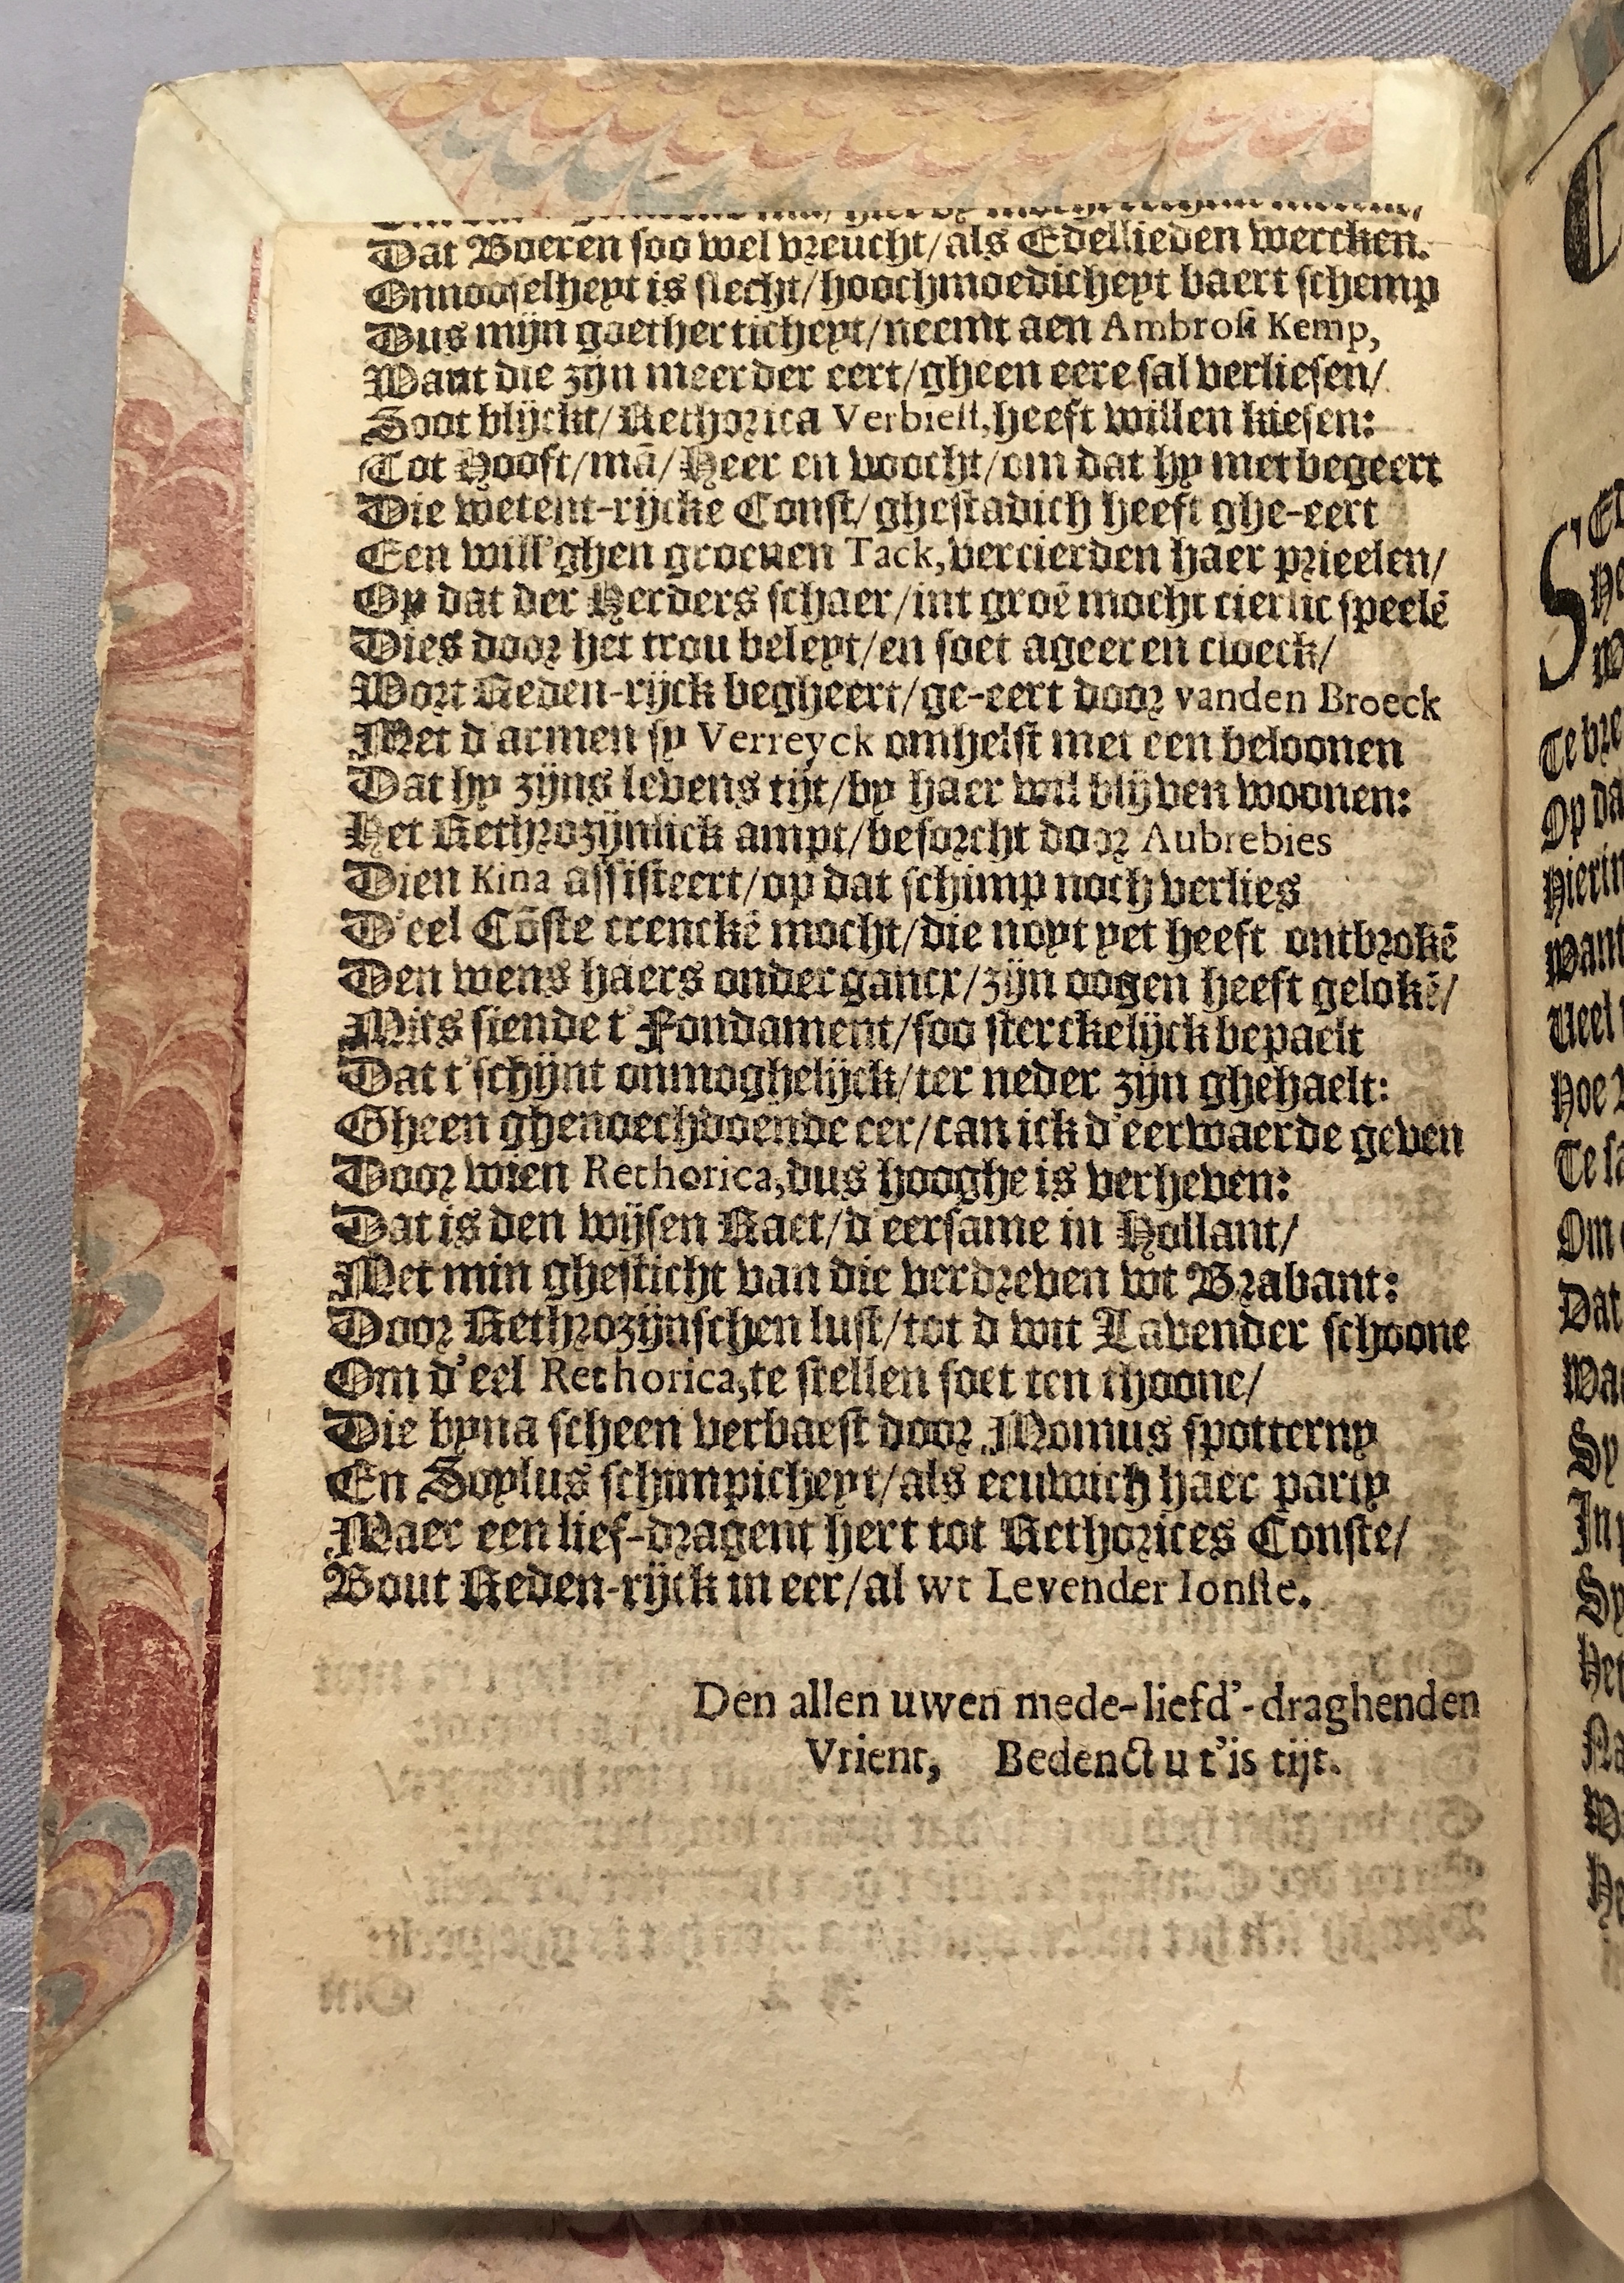 Dat Boeren soo wel vreucht/als Edellieden wercken.
Onnooselheyt is slecht/hoochmoedicheyt baert schemp
Dus mijn goetherticheyt/neemt aen Ambrosi Kemp,
Want die zijn meerder eert/gheen eere sal verliesen/
Soot blijckt/Rethorica Verbiest,heeft willen kiesen:
Tot Hooft/mā/Heer en voocht/om dat hy met begeert
Die wetent-rijcke Const/ghestadich heeft ghe-eert
Een will'ghen groenen Tack,vercierden haer prieelen/
Op dat der Herders schaer/int groē mocht cierlic speelē
Dies door het trou beleyt/en soet ageeren cloeck/
Wort Reden-rijck begheert/ge-eert door vanden Broeck
Met d'armen sy Verreyck omhelst met een beloonen
Dat hy zijns levens tijt/by haer wil blijven woonen:
Het Rethrozijnlick ampt/besorcht door Aubrebies
Dien Kina assisteert/op dat schimp noch verlies
D'eel Cōste crenckē mocht/die noyt yet heeft ontbrokē
Den wens haers ondergancx/zijn oogen heeft gelokē/
Mits siende t'Fondament/soo sterckelijck bepaelt
Dat t'schijnt onmoghelijck/ter neder zijn ghehaelt:
Gheen ghenoechdoende eer/can ick d'eerwaerde geven
Door wien Rethorica,dus hooghe is verheven:
Dat is den wijsen Raet/d'eersame in Hollant/
Met min ghesticht van die verdreven wt Brabant:
Door Rethrozijnschen lust/tot d wit Lavender schoone
Om d'eel Rethorica,te stellen soet ten thoone/
Die byna scheen verbaest door Momus spotterny
En Soylus schimpicheyt/als eeuwich haer party
Maer een lief-dragent hert tot Rethorices Conste/
Bout Reden-rijck in eer/al wt Levender Ionste.
Den allen uwen mede-liefd'-draghenden
Vrient, Bedenct u t'is tijt.